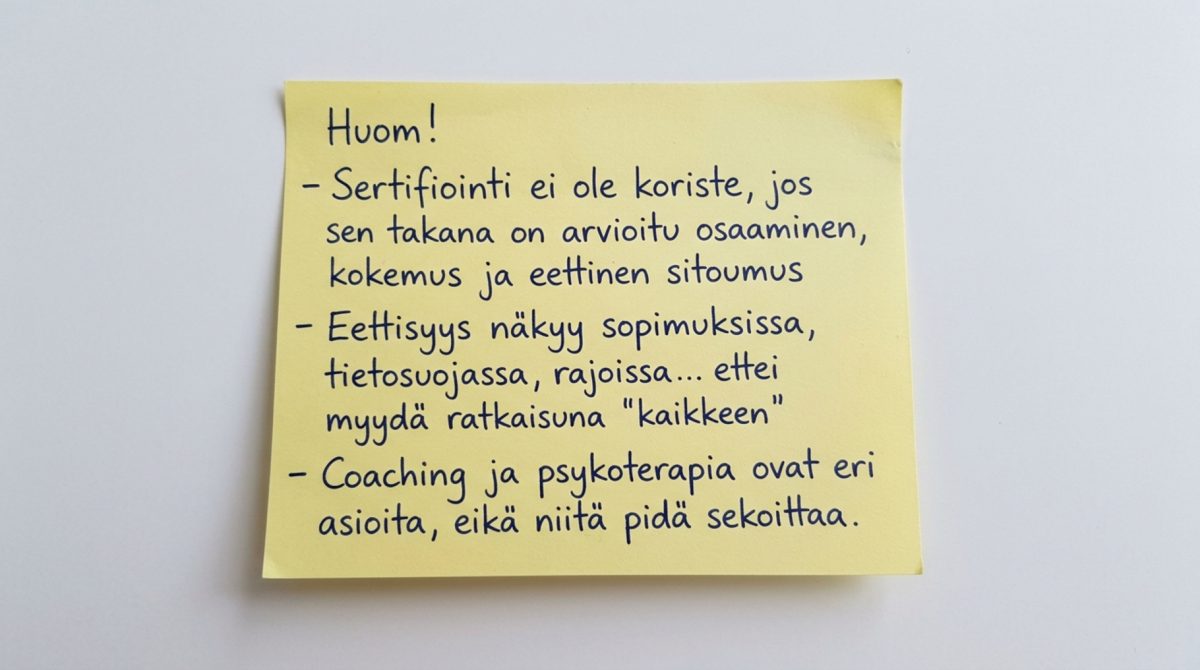 Huom!
- Sertifiointi ei ole koriste, jos
sen takana on arvioitu osaaminen,
kokemus ja eettinen sitoumus
- Eettisyys näkyy sopimuksissa,
tietosuojassa, rajoissa... ettei
myydä ratkaisuna "kaikkeen"
- Coaching ja psykoterapia ovat eri
asioita, eikä niitä pidä sekoittaa.